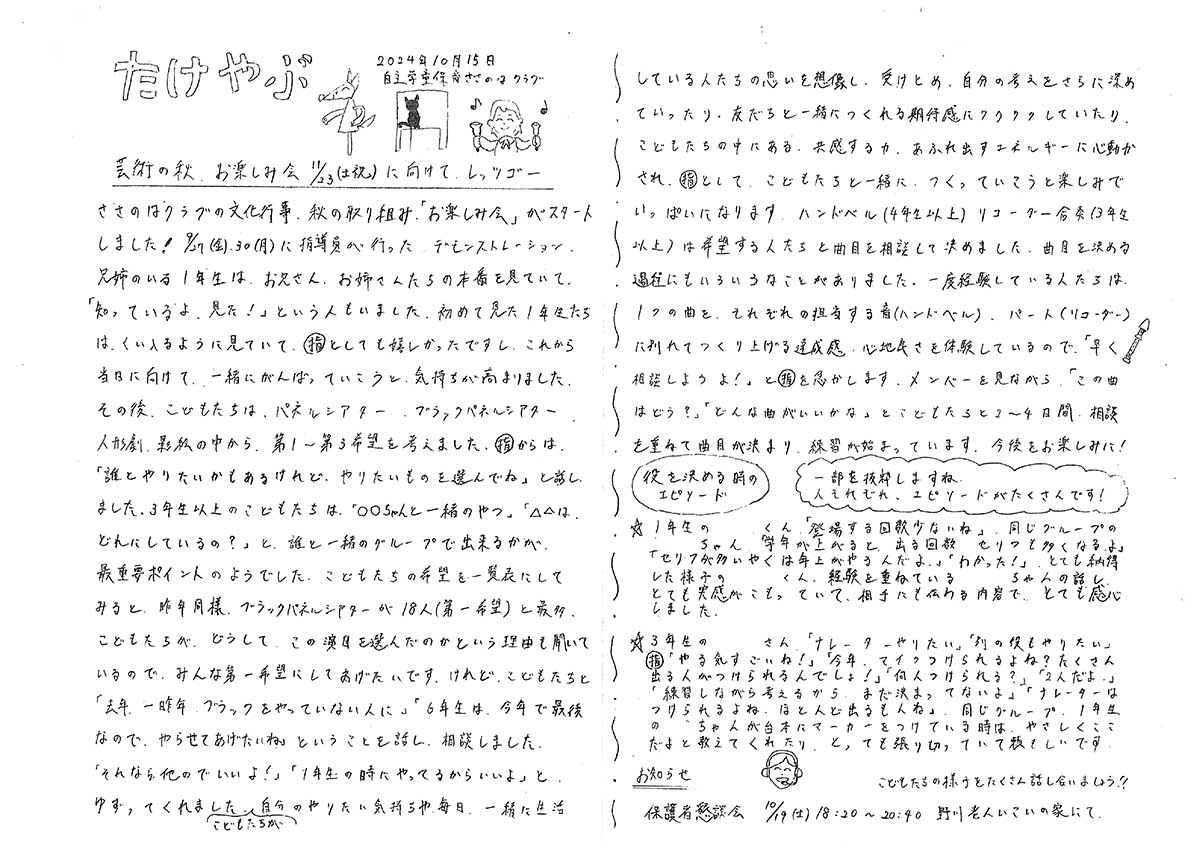 たけやぶ
2024年10月15日
自主学童保育ささのはクラブ
芸術の秋、お楽しみ会 11/23(土祝)に向けて、レッツゴー
ささのはクラブの文化行事、秋の取り組み、「お楽しみ会」がスタート
しました! 9/27(金).30(月)に指導員が行った デモンストレーション、
兄姉のいる1年生は、お兄さん、お姉さんたちの本番を見ていて、
「知っているよ、見た!」という人もいました。初めて見た1年生たち
は、くい入るように見ていて、指としても嬉しかったですし、これから
当日に向けて、一緒にがんばっていこうと、気持ちが高まりました。
その後、こどもたちは、パネルシアター、ブラックパネルシアター
人形劇、影絵の中から、第1~第3希望を考えました。指からは、
「誰とやりたいかもあるけれど、やりたいものを選んでね」と話し
ました。3年生以上のこどもたちは、「○○ちゃんと一緒のやつ」「△△は、
どれにしているの?」と、誰と一緒のグループで出来るかが、
最重要ポイントのようでした。こどもたちの希望を一覧表にして
みると、昨年同様、ブラックパネルシアターが18人(第一希望)と最多、
こどもたちが、どうして、この演目を選んだのかという理由も聞いて
いるので、みんな第一希望にしてあげたいです。けれど、こどもたちと
「去年、一昨年、ブラックをやっていない人に」「6年生は、今年で最後
なので、やらせてあげたいね」ということを話し、相談しました。
「それなら他のでいいよ!」「1年生の時にやってるからいいよ」と、
ゆずってくれました。自分のやりたい気持ちや、毎日、一緒に生活
こどもたちが
している人たちの思いを想像し、受けとめ、自分の考えをさらに深め
ていったり、友だちと一緒につくれる期待感にワクワクしていたり、
こどもたちの中にある、共感する力、あふれ出すエネルギーに心動か
され、指として、こどもたちと一緒に、つくっていこうと楽しみで
いっぱいになります。ハンドベル(4年生以上)リコーダー合奏(3年生
以上)は希望する人たちと曲目を相談して決めました。曲目を決める
過程にもいろいろなことがありました。一度経験している人たちは、
1つの曲を、それぞれの担当する音(ハンドベル)、パート(リコーダー)
に別れてつくり上げる達成感、心地良さを体験しているので、「早く
相談しようよ!」と指を急かします。メンバーを見ながら、「この曲
はどう?」「どんな曲がいいかな」とこどもたちと2~4日間、相談
を重ねて曲目が決まり、練習が始まっています。今後をお楽しみに!
役を決める時の
エピソード
一部を抜粋しますね。
人それぞれ、エピソードがたくさんです!
☆1年生の くん、「登場する回数少ないね」、同じグループの
ちゃん「学年が上がると、出る回数 セリフも多くなるよ」
「セリフが多いやくは年上がやるんだよ」「わかった!」、とても納得
した様子の くん、経験を重ねている ちゃんの話し、
とても実感がこもっていて、相手にも伝わる内容で、とても感心
しました。
☆3年生の さん、「ナレーターやりたい」「別の役もやりたい」
指「やる気すごいね!」「今年、マイクつけられるよね?たくさん
出る人がつけられるんでしょ!」「何人つけられる?」「2人だよ。」
「練習しながら考えるから、まだ決まってないよ」「ナレーターは
つけられるよね、ほとんど出るもんね」、同じグループ、1年生
の ちゃんが台本にマーカーをつけている時は、やさしくここ
だよと教えてくれたり、とっても張り切っていて頼もしいです。
お知らせ
こどもたちの様子をたくさん話し合いましょう!!
保護者懇談会 10/19(土)18:20~20:40 野川老人いこいの家にて。